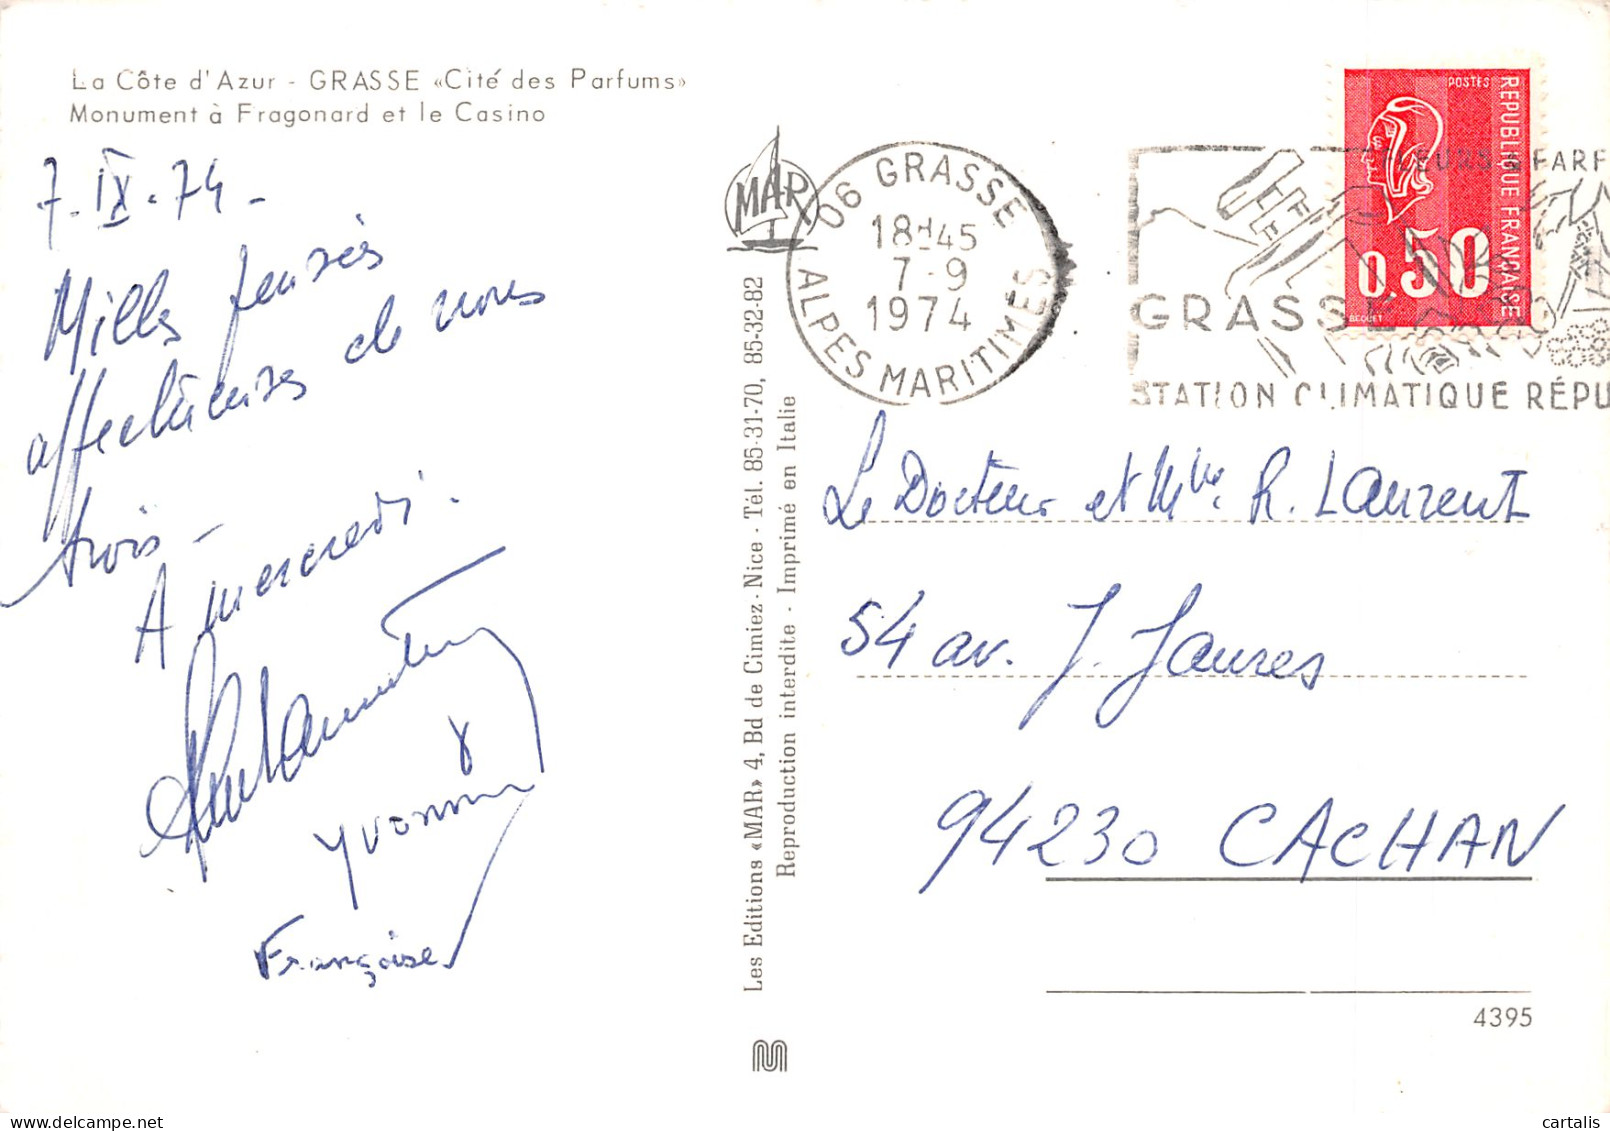 La Côte d'Azur - GRASSE «Cité des Parfums»
Monument à Fragonard et le Casino
7.IX.74 -
Milles pensées
affectueuses de nous
trois -
A mercredi.
Yvonne
Françoise
Les Editions «MAR» 4, Bd de Cimiez - Nice - Tél. 85-31-70, 85-32-82
Reproduction interdite - Imprimé en Italie
MAR
06 GRASSE
18H45
7-9
1974
ALPES MARITIMES
EURS & PARF
GRASSE
STATION CLIMATIQUE RÉPU
POSTES
REPUBLIQUE FRANÇAISE
0,50
BEQUET
Le Docteur et Mme. R. Laurent
54 av. J. Jaures
94230 CACHAN
4395
M
cartalis